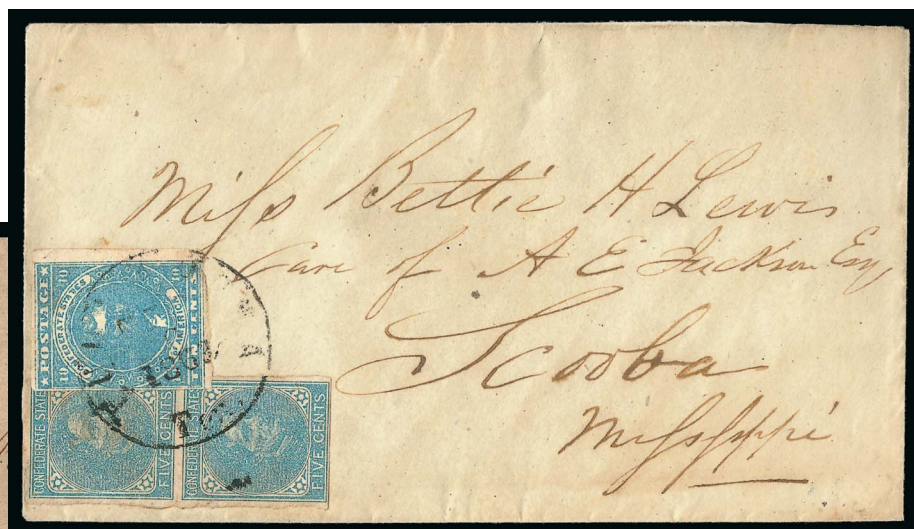 Miss Bettie H Lewis
Care of A E Jackson Esq,
Scooba
Mississippi
POSTAGE
10
10
CONFEDERATE STATES
OF AMERICA
TEN CENTS
10
CONFEDERATE STATES
FIVE CENTS
STATES
FIVE CENTS